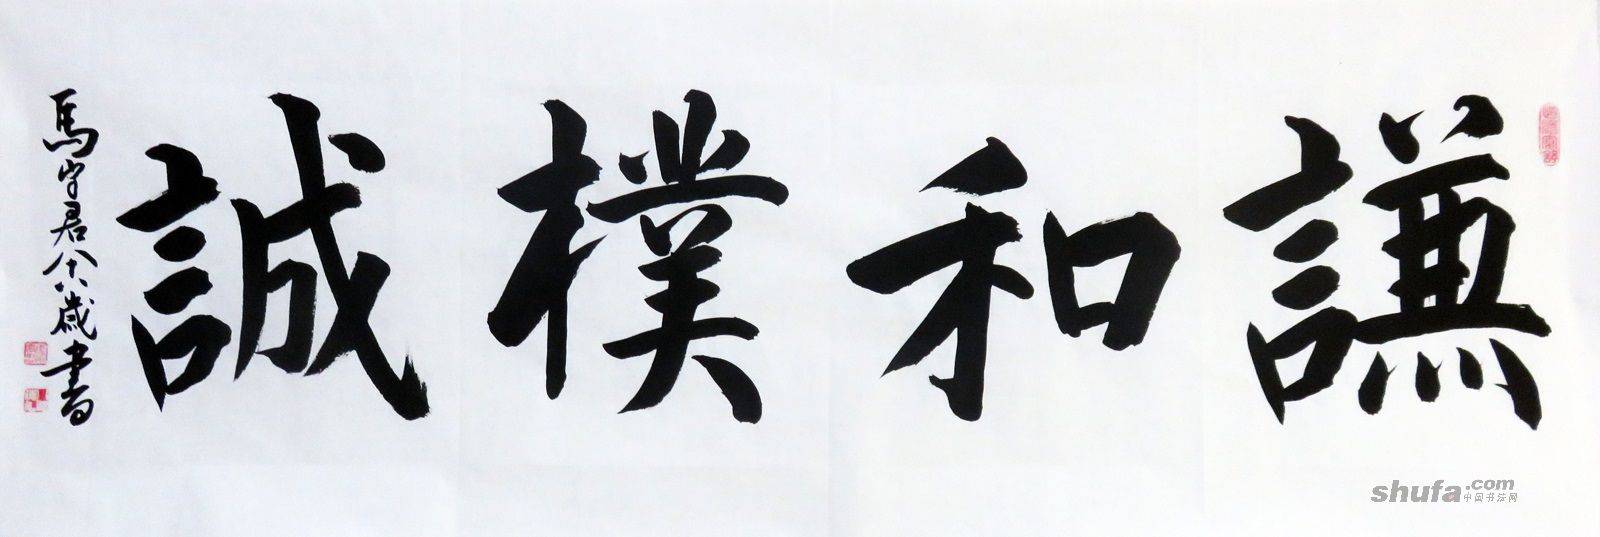 謙和樸誠
馬守君八十八歲書
shufa.com
中国书法网